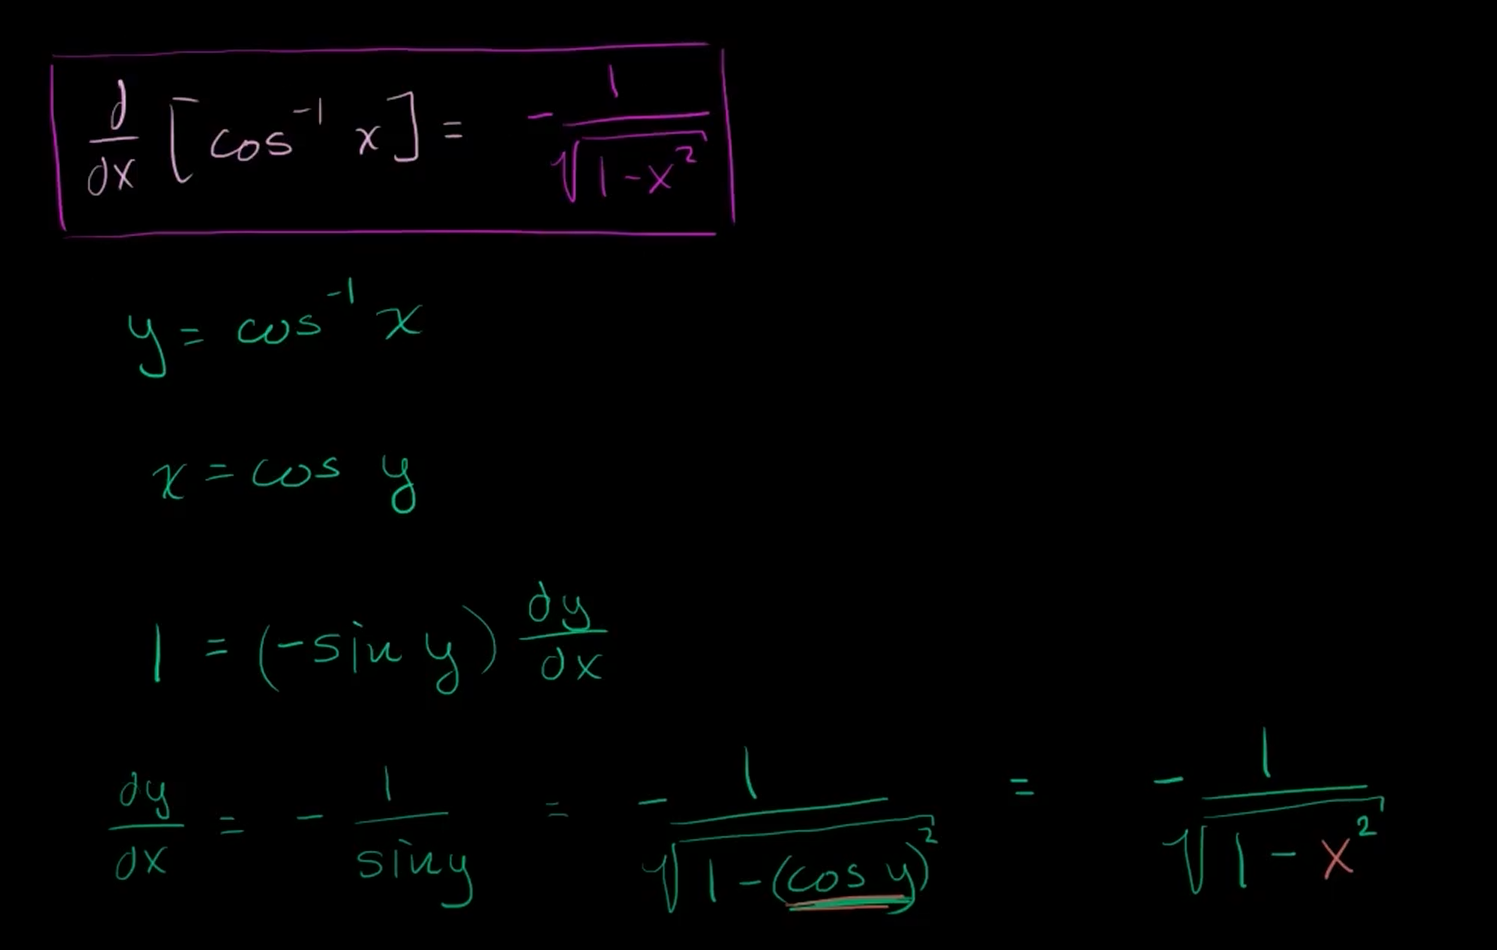 d/dx [cos⁻¹ x] = - 1/√(1-x²)
y = cos⁻¹ x
x = cos y
1 = (-sin y) dy/dx
dy/dx = - 1/sin y = - 1/√(1-(cos y)²) = - 1/√(1-x²)